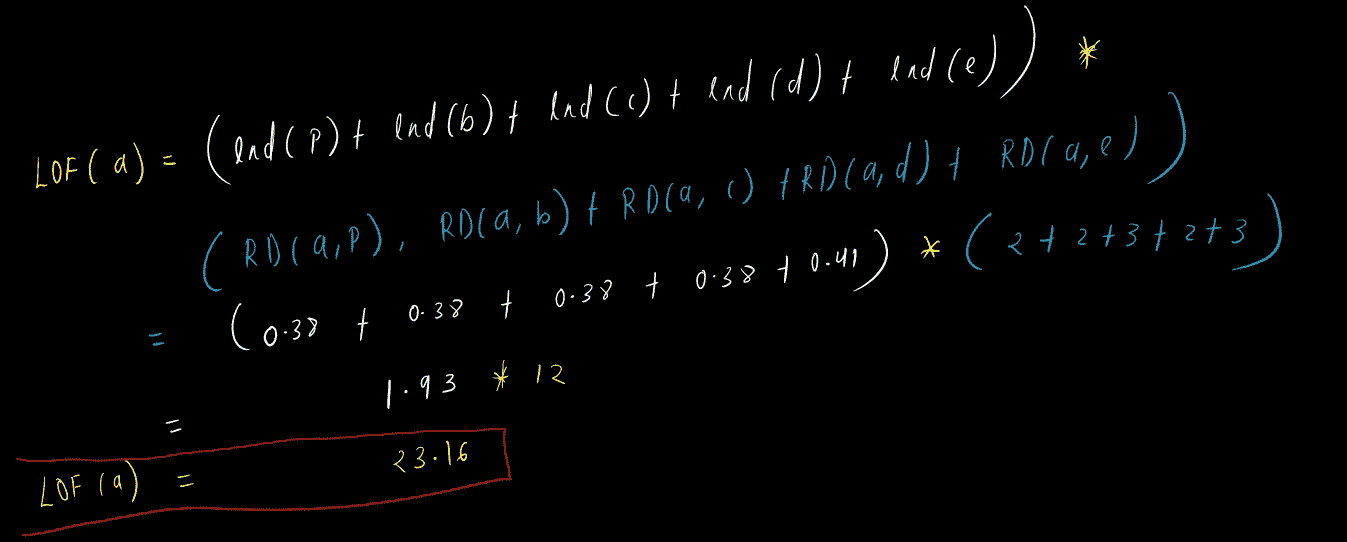 LOF(a) = (lrd(p) + lrd(b) + lrd(c) + lrd(d) + lrd(e)) *
(RD(a,P), RD(a,b) + RD(a,c) + RD(a,d) + RD(a,e))
= (0.38 + 0.38 + 0.38 + 0.38 + 0.41) * (2+2+3+2+3)
= 1.93 * 12
LOF(a) = 23.16